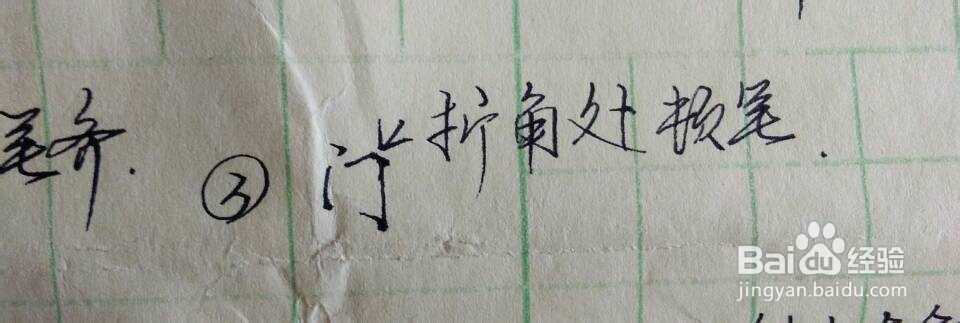 笔齐. ③ 门 折角处顿笔.
Bai du 经验
jingyan.baidu.com